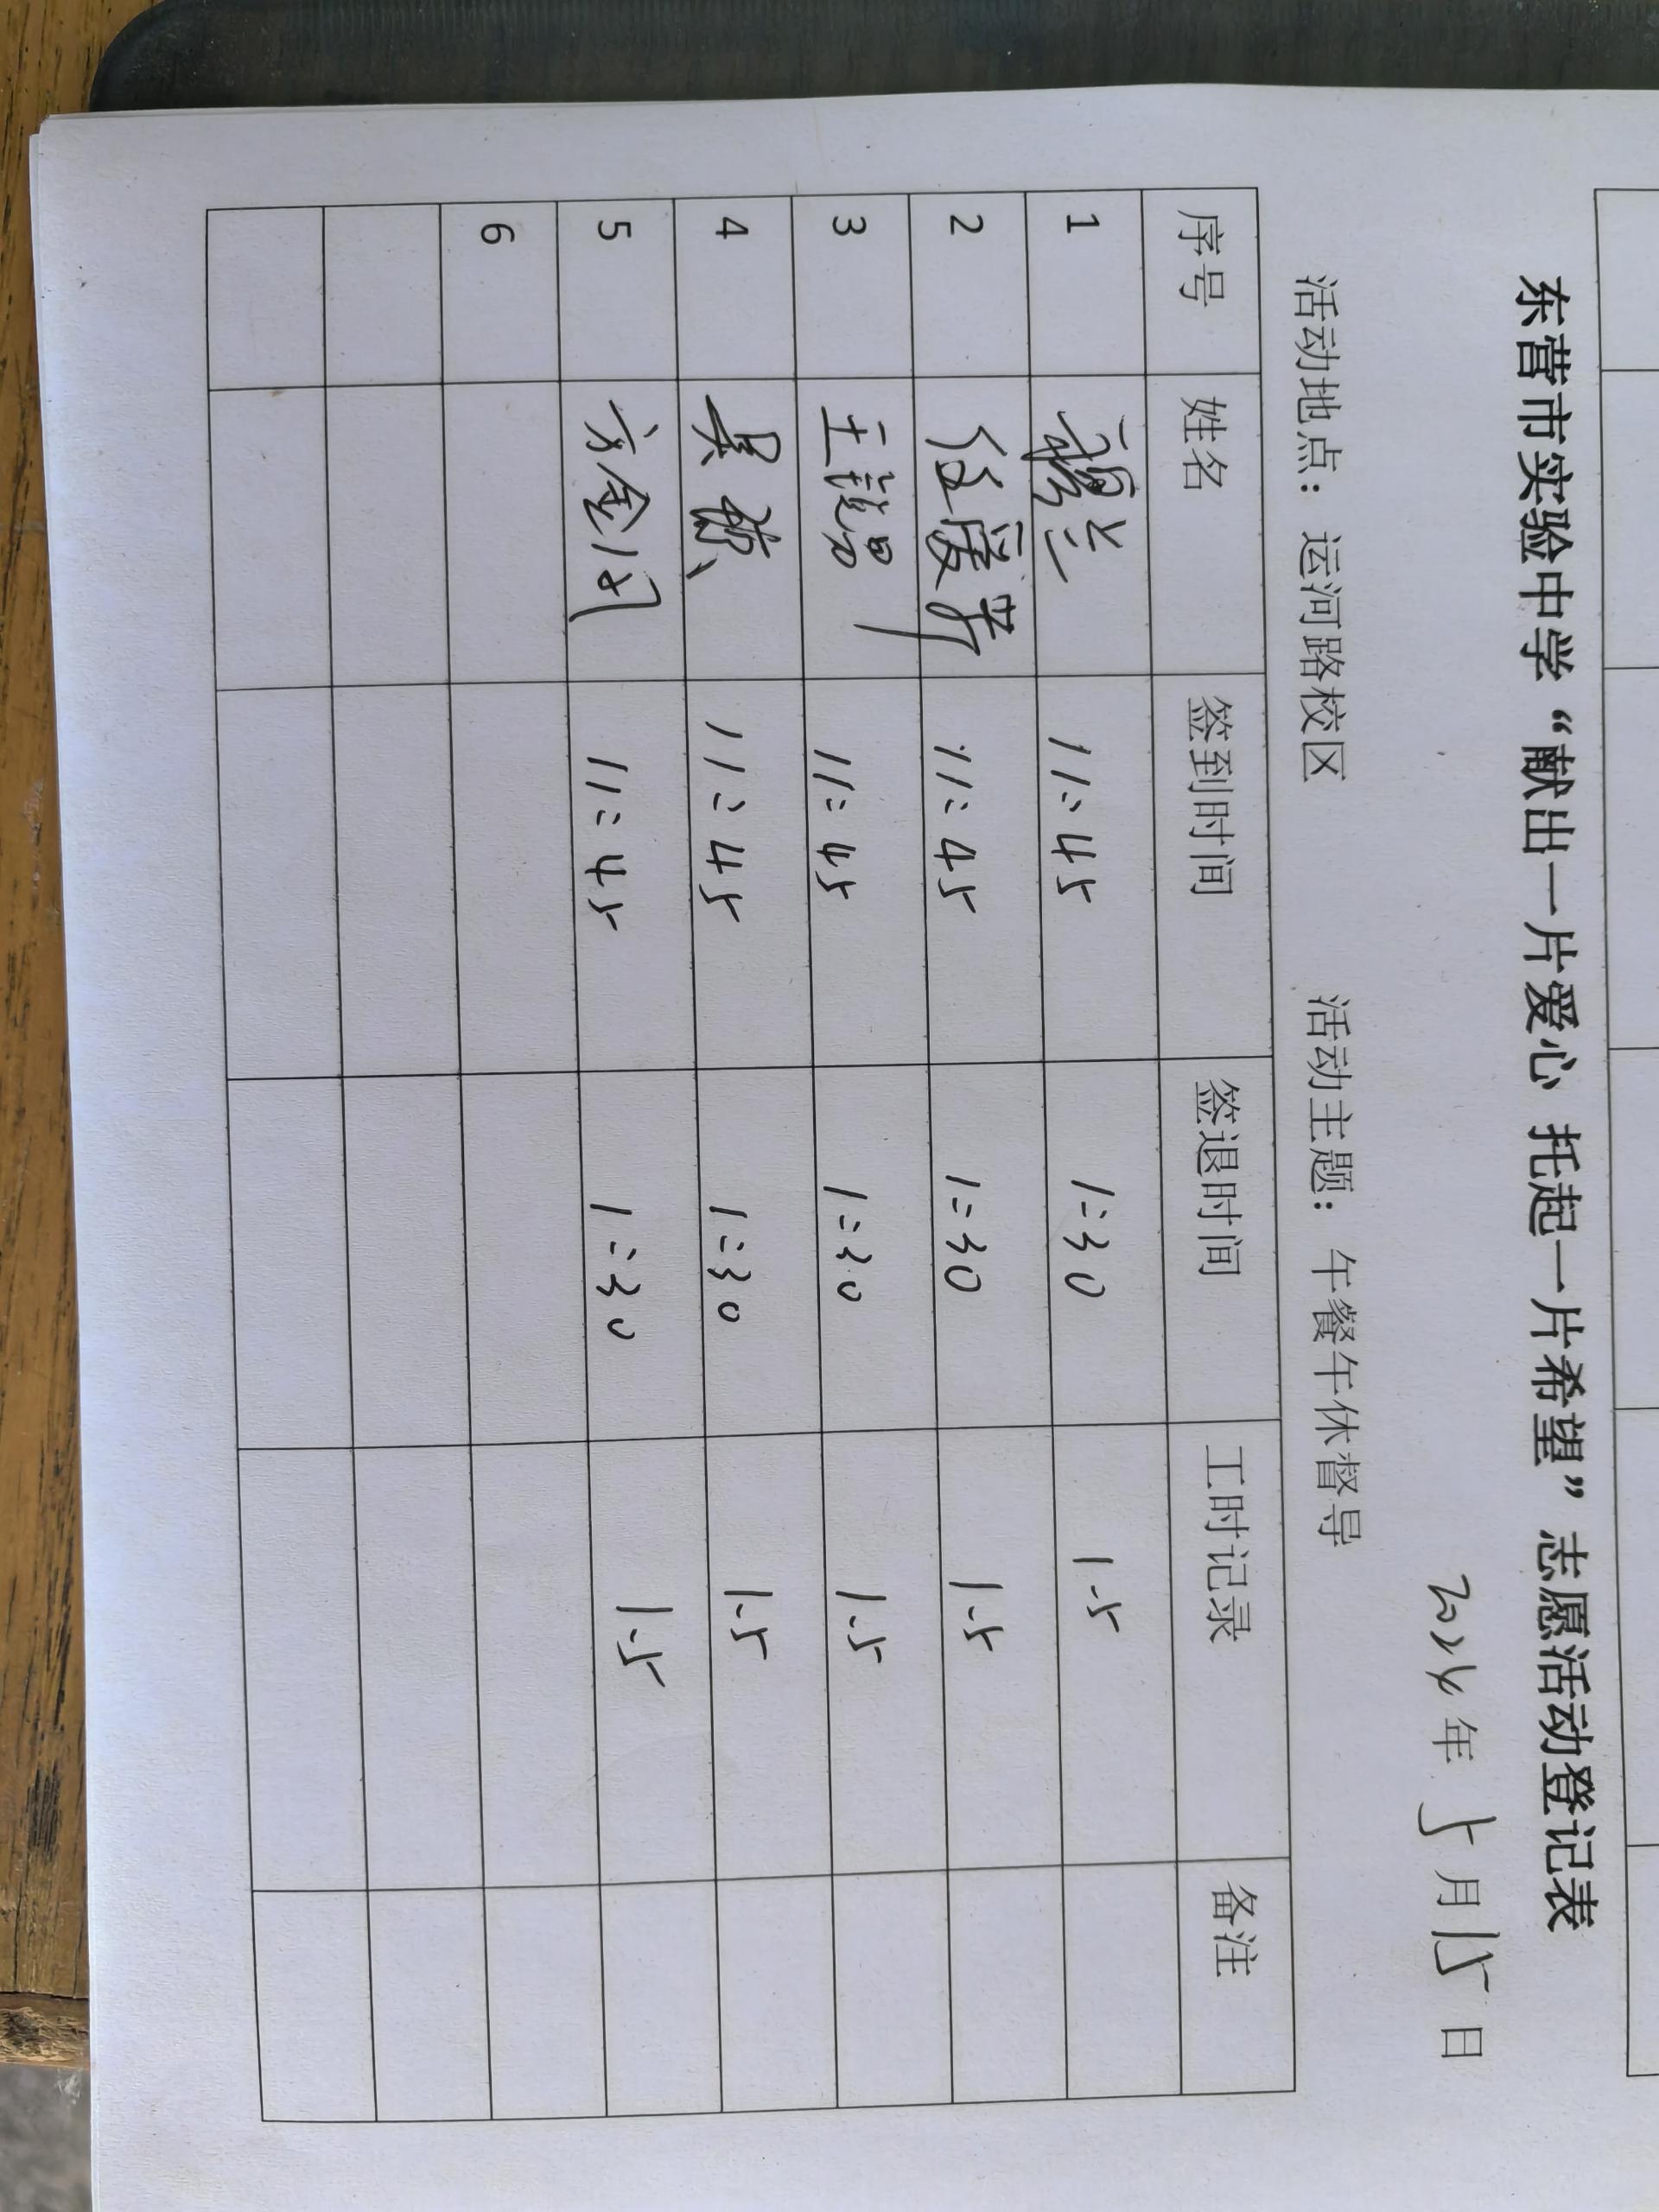 东营市实验中学“献出一片爱心 托起一片希望”志愿活动登记表
2024年5月15日
活动地点：运河路校区 活动主题：午餐午休督导
序号 姓名 签到时间 签退时间 工时记录 备注
1 11:45 1:30 1.5
2 任爱芹 11:45 1:30 1.5
3 王锐昌 11:45 1:30 1.5
4 吴 11:45 1:30 1.5
5 金 11:45 1:30 1.5
6